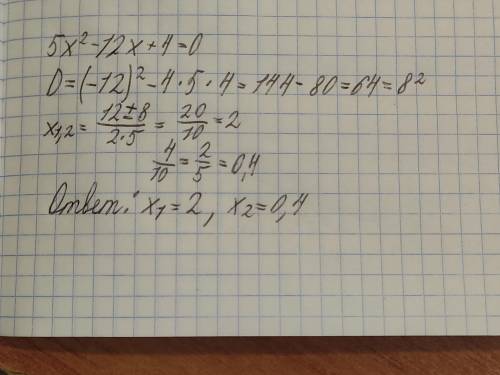 5x² - 12x + 4 = 0
D = (-12)² - 4 · 5 · 4 = 144 - 80 = 64 = 8²
x₁,₂ = (12 ± 8)/(2 · 5) = 20/10 = 2
4/10 = 2/5 = 0,4
Ответ: x₁ = 2, x₂ = 0,4